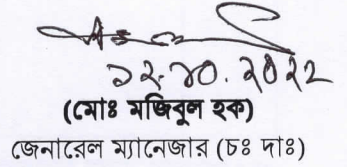 ১২.১০.২০২২
(মোঃ মজিবুল হক)
জেনারেল ম্যানেজার (চঃ দাঃ)